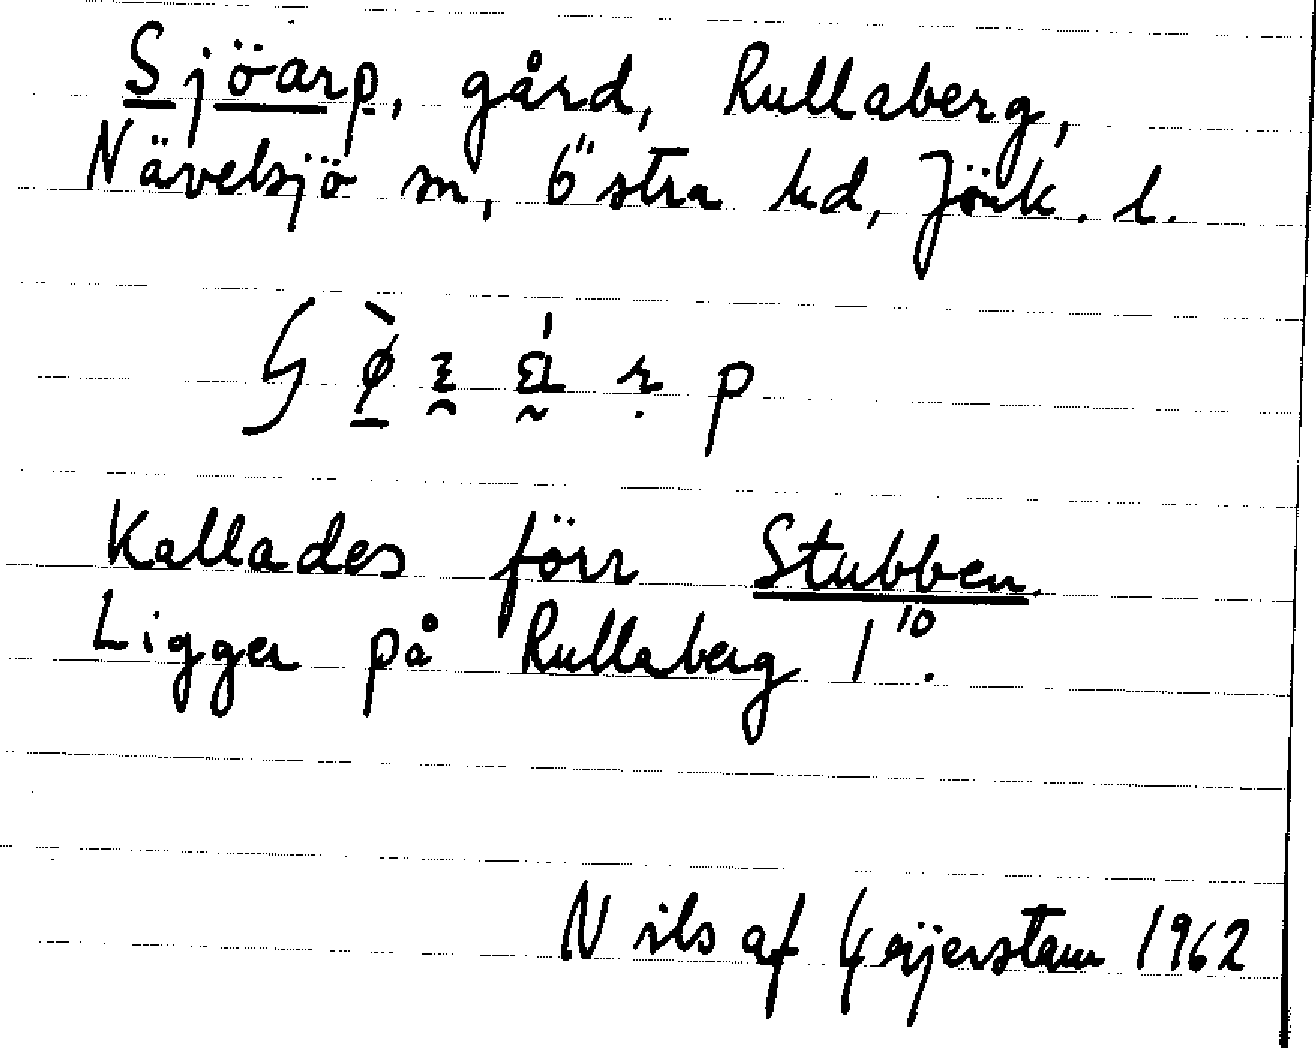 Sjöarp, gård, Rullaberg,
Nävelsjö sn, Östra hd, Jönk. l.
Kallades förr Stubben.
Ligger på Rullaberg 1¹⁰.
Nils af Geijerstam 1962